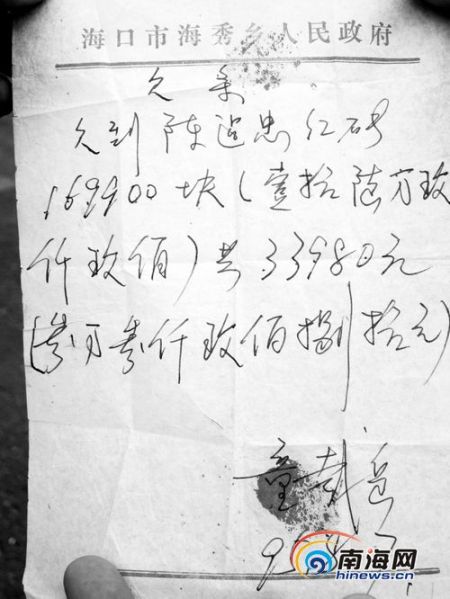 海口市海秀乡人民政府
欠条
欠到陈运忠红砖
169900块(壹拾陆万玖
仟玖佰)共33980元
(叁万叁仟玖佰捌拾元)
童戴
南海网
hinews.cn